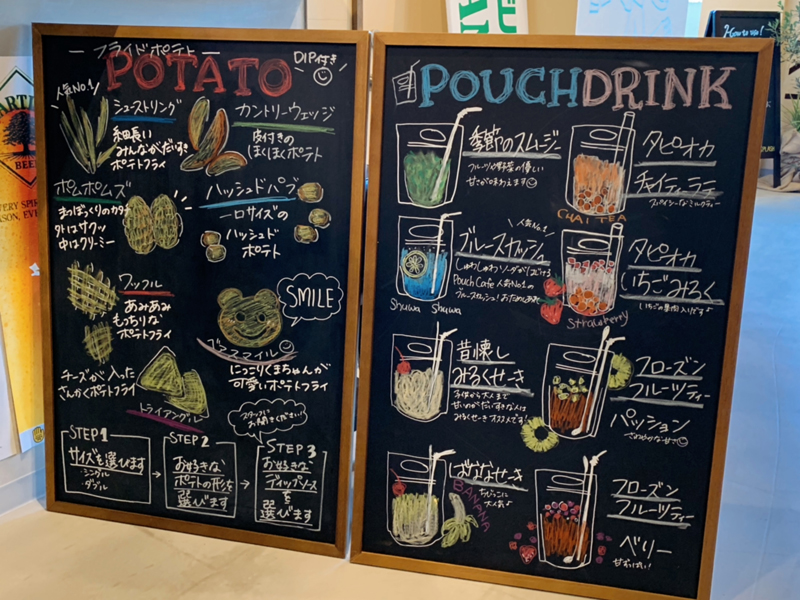 フライドポテト
POTATO
DIP付き
人気No.1
シューストリング
細長い
みんなかだいすき
ポテトフライ
カントリーウェッジ
皮付きの
ほくほくポテト
ポムポムズ
まつぼっくりのカタチ
外はサクッ
中はクリーミー
ハッシュドパブ
一口サイズの
ハッシュド
ポテト
ワッフル
あみあみ
もっちりな
ポテトフライ
SMILE
ベアスマイル
にっこりくまちゃんが
可愛いポテトフライ
チーズが入った
さんかくポテトフライ
トライアングル
スタッフに
お聞きください!
STEP1
サイズを選びます
・シングル
・ダブル
STEP2
お好きな
ポテトの形を
選びます
STEP3
お好きな
ディップソース
を
選びます
POUCHDRINK
季節のスムージー
フルーツや野菜の優しい
甘さが味わえます
タピオカ
チャイティーラテ
スパイシーなミルクティー
CHAI TEA
人気No.1
ブルースカッシュ
しゅわしゅわソーダがはじける
Pouch Cafe 人気No.1の
ブルースカッシュ!おためしあれ
Shuwa Shuwa
タピオカ
いちごみるく
いちごの果肉入りです♪
Strawberry
昔懐し
みるくせーき
子供から大人まで
甘いのがだいすきな人は
みるくせーきオススメです
フローズン
フルーツティー
パッション
さわやかな甘さ
ばななせーき
ちびっこに
大人気♪
BANANA
フローズン
フルーツティー
ベリー
甘ずっぱい!
How to up!
BEER